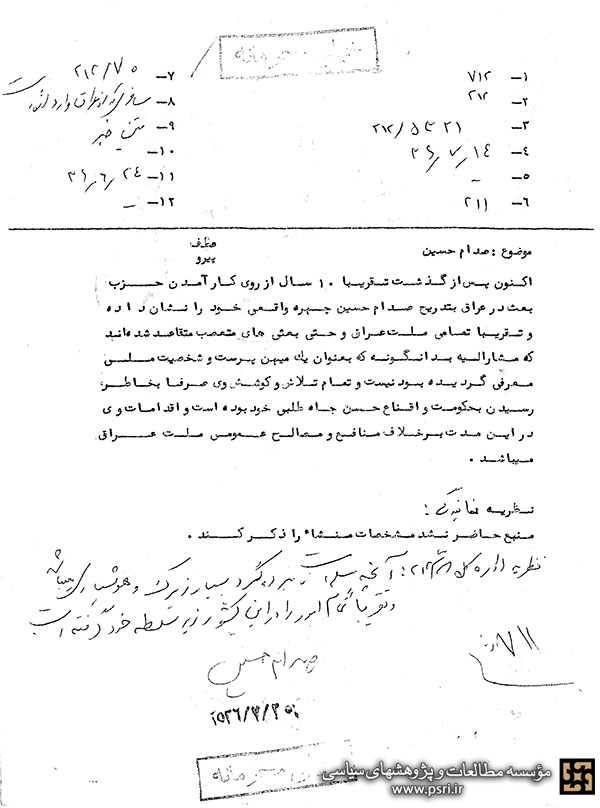 خیلی محرمانه
۱- ۷۱۲
۲- ۲۱۲
۳- ۲۱۲/۵۳۲۱
۴- ۳۶/۷/۱۴
۵- -
۶- ۲۱۱
۷- ۲۱۲/۷۰
۸-
۹- متن خبر
۱۰-
۱۱- ۳۶/۶/۲۴
۱۲- -
موضوع : صدام حسین
عطف
پیرو
اکنون پس از گذشت تقریبا ۱۰ سال از روی کار آمدن حزب
بعث در عراق بتدریج صدام حسین چهره واقعی خود را نشان داده
و تقریبا تمامی ملت عراق و حتی بعثی های متعصب متقاعد شده‌اند
که مشارالیه بدانگونه که بعنوان یك میهن پرست و شخصیت ملی
معرفی گردیده بود نیست و تمام تلاش و کوشش وی صرفا بخاطر
رسیدن بحکومت و اقناع حسن جاه طلبی خود بوده است و اقدامات وی
در این مدت برخلاف منافع و مصالح عمومی ملت عراق
میباشد .
نظریه نمایندگی :
منبع حاضر نشد مشخصات منشاء را ذکر کند .
نظریه اداره کل : آنچه مسلم است نامبرده گرد بسیار زیرک و هوشیاری میباشد
و تقریباً تمام امور را در این کشور زیر سلطه خود گرفته است
صدام حسین
۲۵۳۶/۳/۲۵
محرمانه
مؤسسه مطالعات و پژوهشهای سیاسی
www.psri.ir